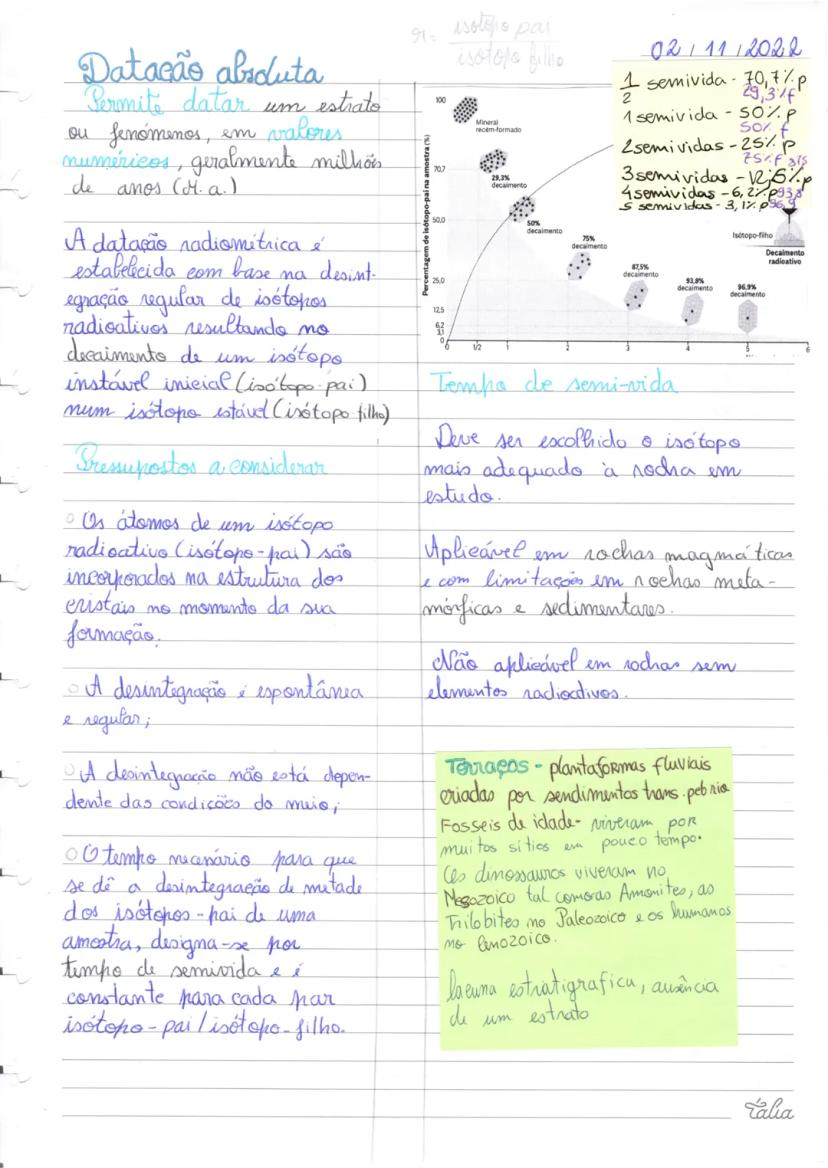 r = isótopo pai
isótopo filho
02/11/2022
Datação absoluta
Permite datar um estrato
ou fenómenos, em valores
numéricos, geralmente milhões
de anos (M. a.)
A datação radiométrica é
estabelecida com base na desint-
egração regular de isótopos
radioativos resultando no
decaimento de um isótopo
instável inicial (isótopo-pai)
num isótopo estável (isótopo filho)
Pressupostos a considerar
Os átomos de um isótopo
radioativo (isótopo-pai) são
incorporados na estrutura dos
cristais no momento da sua
formação.
A desintegração é espontânea
e regular;
A desintegração não está depen-
dente das condições do meio;
O tempo necessário para que
se dê a desintegração de metade
dos isótopos-pai de uma
amostra, designa-se por
tempo de semivida e é
constante para cada par
isótopo-pai/isótopo-filho.
1/2 semivida - 70,7% p
29,3% f
1 semivida - 50% p
50% f
2 semividas - 25% p
75% f
3 semividas - 12,5% p
4 semividas - 6,2% p 93,8
5 semividas - 3,1% p 96,9
Percentagem de isótopo-pai na amostra (%)
100
70,7
50,0
25,0
12,5
6,2
3,1
0
Mineral
recém-formado
29,3%
decaimento
50%
decaimento
75%
decaimento
87,5%
decaimento
93,8%
decaimento
96,9%
decaimento
Isótopo-filho
Decaimento
radioativo
0 1/2 1 2 3 4 5 6
Tempo de semi-vida
Deve ser escolhido o isótopo
mais adequado à rocha em
estudo.
Aplicável em rochas magmáticas
e com limitações em rochas meta-
mórficas e sedimentares.
Não aplicável em rochas sem
elementos radioativos.
Terraços - plantaformas fluviais
criadas por sendimentos trans. peb rio
Fosseis de idade - viveram por
muitos sitios em pouco tempo.
Os dinossauros viveram no
Mezozoico tal como as Amonites, as
Trilobites no Paleozoico e os humanos
no Cenozoico.
lacuna estratigrafica, ausência
de um estrato
Tália